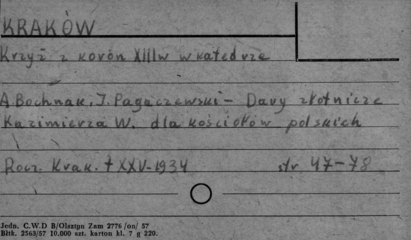 KRAKÓW
Krzyż z koron XIIIw w katedrze
A. Bochnak, J. Pagaczewski - Dary złotnicze
Kazimierza W. dla kościołów polskich
Rocz. Krak. t XXV-1934 str 47-78
Jedn. C.W.D B/Olsztyn Zam 2776 /on/ 57
Błtk. 2563/57 10.000 szt. karton kl. 7 g 220.